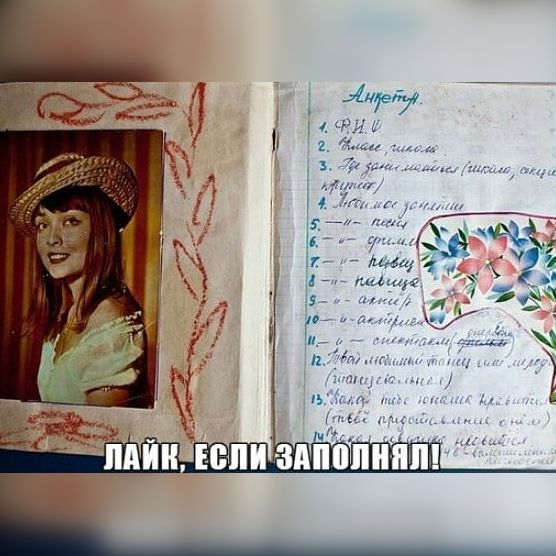 Анкета.
1. Ф.И.О
2. Класс, школа
3. Где занимаешься (школа, секция
кружок)
4. Любимое занятие
5. —"— песня
6. —"— фильм
7. —"— певец
8. —"— певица
9. —"— актёр
10 —"— актриса
11. —"— спектакль (оперетта)
12. Твой любимый танец или мелод
(танцевальная)
13. Какой тебе юноша нравится
(твоё представление о нём)
14 Какая девушка нравится
ЛАЙК, ЕСЛИ ЗАПОЛНЯЛ!